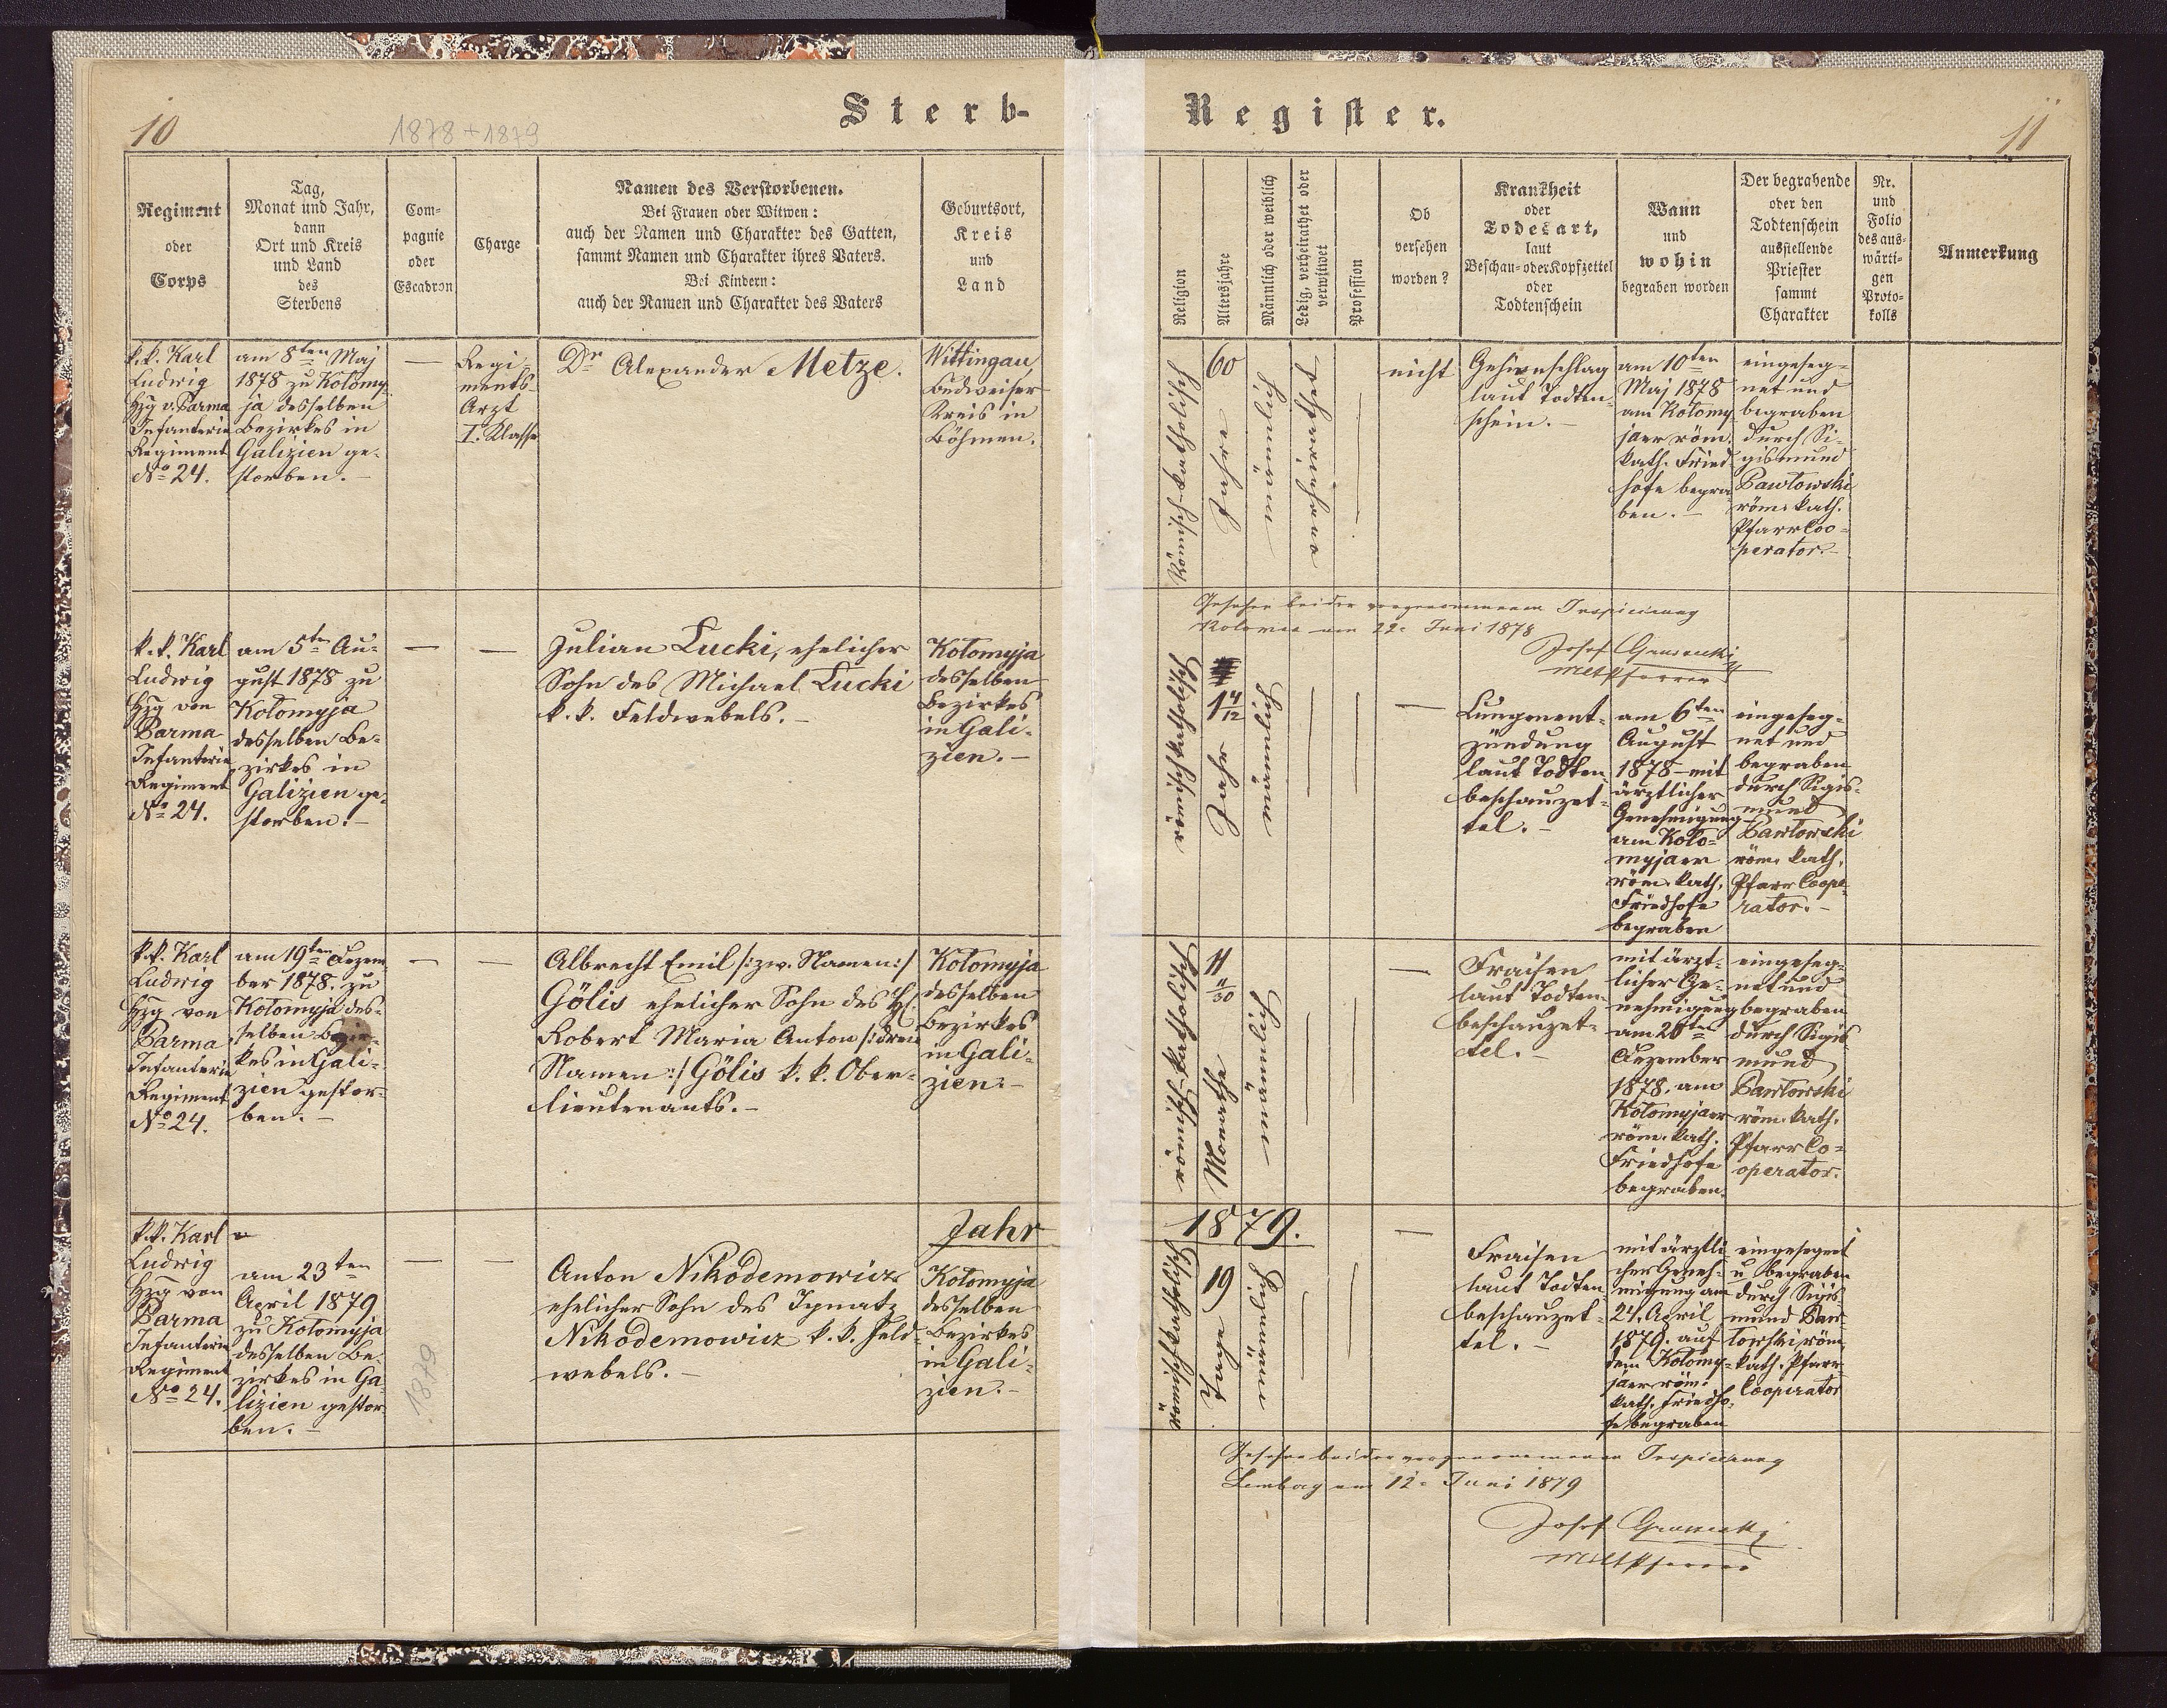 10
1878 + 1879
Sterb-
Register.
11
Regiment
oder
Corps
Tag,
Monat und Jahr,
dann
Ort und Kreis
und Land
des
Sterbens
Com-
pagnie
oder
Escadron
Charge
Namen des Verstorbenen.
Bei Frauen oder Witwen:
auch der Namen und Charakter des Gatten,
sammt Namen und Charakter ihres Vaters.
Bei Kindern:
auch der Namen und Charakter des Vaters
Geburtsort,
Kreis
und
Land
Religion
Altersjahre
Männlich oder weiblich
Ledig, verheirathet oder
verwitwet
Profession
Ob
versehen
worden?
Krankheit
oder
Todesart,
laut
Beschau- oder Kopfzettel
oder
Todtenschein
Wann
und
wohin
begraben worden
Der begrabende
oder den
Todtenschein
ausstellende
Priester
sammt
Charakter
Nr.
und
Folio
des aus-
wärti-
gen
Proto-
kolls
Anmerkung
k. k. Karl
Ludwig
Hzg v. Parma
Infanterie
Regiment
No 24.
am 8ten Maj
1878 zu Kołomy-
ja desselben
Bezirkes in
Galizien ge-
storben. –
—
Regi-
ments-
Arzt
I. Klasse
Dr Alexander Metze.
Wittingau,
Budweiser
Kreis in
Böhmen.
Römisch-katholisch
60
Jahre
männlich
verheirathet
—
nicht
Gehirnschlag
laut Todten-
schein. –
am 10ten
Maj 1878
am Kołomy-
jaer röm.
kath. Fried-
hofe begra-
ben. –
eingeseg-
net und
begraben
durch Si-
gismund
Pawłowski
röm. kath.
Pfarr Coo-
perator. –
Gesehen bei der vorgenommenen Inspicirung
Kolomea am 22. Juni 1878
Josef
MiltPfarrer
k. k. Karl
Ludwig
Hzg von
Parma
Infanterie
Regiment
No 24.
am 5ten Au-
gust 1878 zu
Kołomyja
desselben Be-
zirkes in
Galizien ge-
storben. –
— —
Julian Łucki, ehelicher
Sohn des Michael Łucki
k. k. Feldwebels. –
Kołomyja
desselben
Bezirkes
in Gali-
zien. –
römischkatholisch
1 4/12
Jahr
männlich
— — —
Lungenent-
zündung
laut Todten-
beschauzet-
tel. –
am 6ten
August
1878 – mit
ärztlicher
Genehmigung
am Koło-
myjaer
röm. kath.
Friedhofe
begraben
eingeseg-
net und
begraben
durch Sigis-
mund
Pawłowski
röm. kath.
Pfarr Coope-
rator. –
k. k. Karl
Ludwig
Hzg von
Parma
Infanterie
Regiment
No 24.
am 19ten Dezem-
ber 1878. zu
Kołomyja des-
selben Bezir-
kes in Gali-
zien gestor-
ben. –
— —
Albrecht Emil /: zw. Namen :/
Gölis ehelicher Sohn des H.
Robert Maria Anton /: drei
Namen :/ Gölis k. k. Ober-
lieutenants. –
Kołomyja
desselben
Bezirkes
in Gali-
zien. –
römisch-katholisch
11 11/30
Monathe
männlich
— — —
Fraisen
laut Todten-
beschauzet-
tel. –
mit ärzt-
licher Ge-
nehmigung
am 20ten
Dezember
1878. am
Kołomyjaer
röm. kath.
Friedhofe
begraben.
eingeseg-
net und
begraben
durch Sigis-
mund
Pawłowski
röm. kath.
Pfarr Co-
operator.
Jahr 1879.
k. k. Karl
Ludwig
Hzg von
Parma
Infanterie
Regiment
No 24.
am 23ten
April 1879
zu Kołomyja
desselben Be-
zirkes in Ga-
lizien gestor-
ben. –
— —
1879
Anton Nikodemowicz
ehelicher Sohn des Ignatz
Nikodemowicz k. k. Feld-
webels. –
Kołomyja
desselben
Bezirkes
in Gali-
zien. –
römischkatholisch
19
Tage
männlich
— — —
Fraisen
laut Todten-
beschauzet-
tel. –
mit ärztli-
cher Geneh-
migung am
24. April
1879. auf
dem Kołomy-
jaer röm.
kath. Friedho-
fe begraben
eingesegnet
u. begraben
durch Sigis-
mund Paw-
łowski röm.
kath. Pfarr
Cooperator
Gesehen bei der vorgenommenen Inspicirung
Lemberg am 12. Juni 1879
Josef
MiltPfarrer